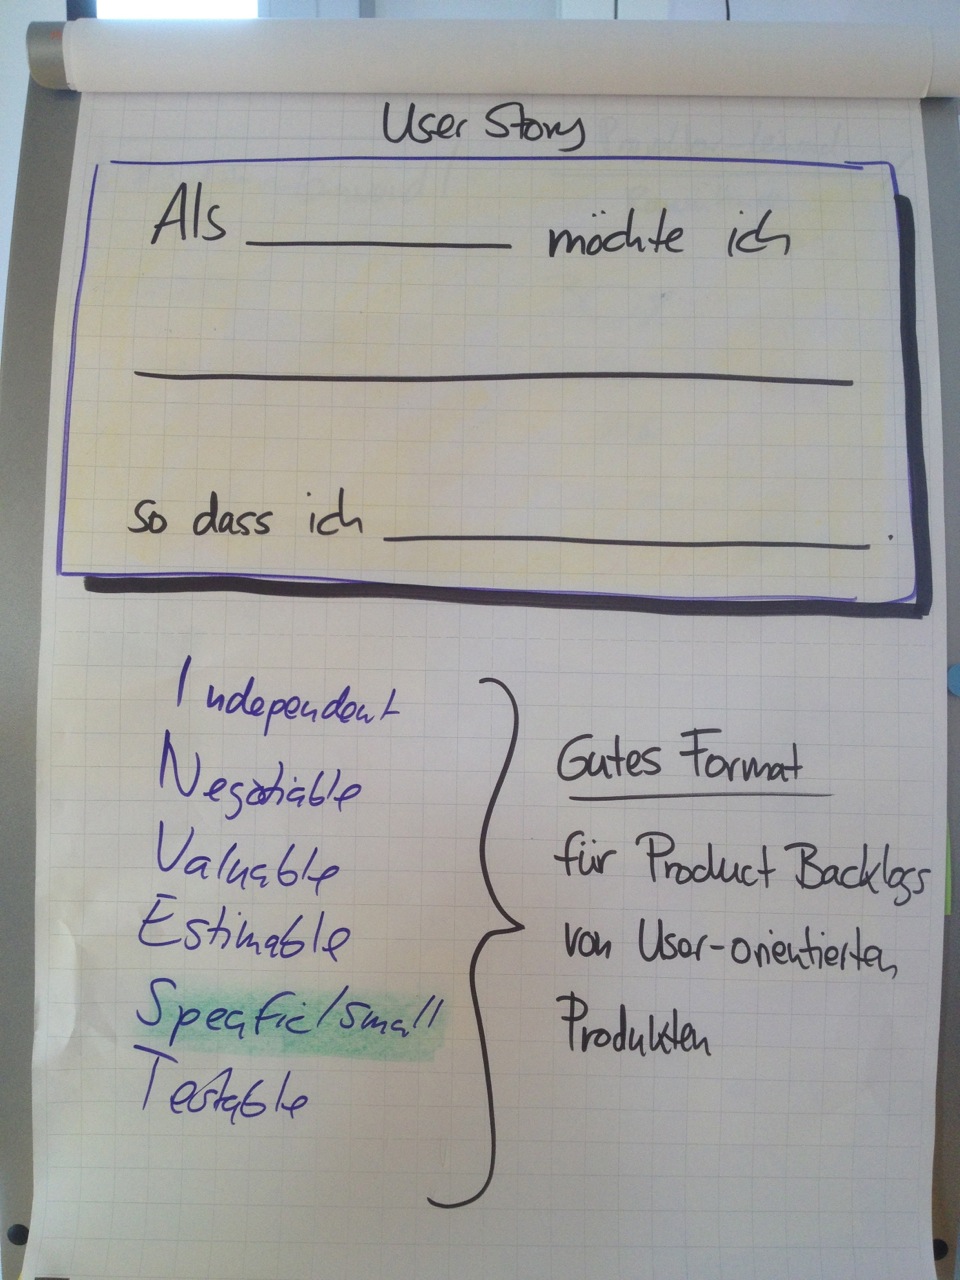 User Story
Als __________ möchte ich
__________
so dass ich __________.
Independent
Negotiable
Valuable
Estimable
Specific/Small
Testable
Gutes Format
für Product Backlogs
von User-orientierten
Produkten